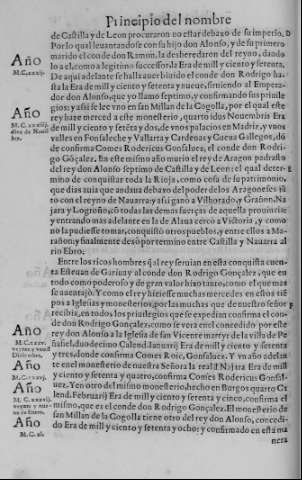 Principio del nombre
de Castilla y de Leon procuraron no estar debaxo de su imperio.
Por lo qual leuantandose con su hijo don Alonso, y de su primero
marido el conde don Ramon, la desheredaron del reyno, dando
lo a el, como a legitimo succesſor, la Era de mil y ciento y setenta.
De aqui adelante se halla auer biuido el conde don Rodrigo ha-
sta la Era de mil y ciento y setenta y nueue, siruiendo al Empera-
dor don Alonso, que yo llamo septimo, y confirmando sus priuile-
gios: y assi se lee vno en san Millan de la Cogolla, por el qual este
rey haze merced a este monesterio, quarto idus Nouembris Era
de mil y ciento y setēta y dos, de vnos palacios en Madriz, y vnos
valles en Fonsaleche y Vallarta y Cardenas y Cueua Gallegos, dō
de confirma Comes Rodericus Gonsalues, el conde don Rodri-
go Gōçalez. En este mismo año murio el rey de Aragon padrastro
del rey don Alonso septimo de Castilla y de Leon: el qual deter-
mino de conquistar toda la Rioja, como cosa de su patrimonio,
que dias auia que andaua debaxo del poder de los Aragoneses jū-
to con el reyno de Nauarra: y assi gano a Vilhorado, y Grañon, Na
jara y Logroño, cō todas las demas fuerças de aquella prouincia:
y entrando mas adelante en la Alaua cercò a Victoria, y como
no la pudiesse tomar, conquistò otros pueblos, y entre ellos a Ma-
rañon: y finalmente dexò por termino entre Castilla y Nauarra al
rio Ebro.
Entre los ricos hombres q̄ al rey seruian en esta conquista cuen-
ta Esteuan de Gariuay al conde don Rodrigo Gonçalez, que en
todo como poderoso y de gran valor hizo tanto, como el que mas
se auentajò. Y como el rey hiziesse muchas mercedes en estos tiē
pos a Iglesias y monesterios por las muchas que de nuestro señor
recibia, en todos los priuilegios que se expedian confirma el con-
de don Rodrigo Gonçalez, como se vera en el concedido por este
rey don Alonso a la Iglesia de san Vicente martyr de la villa de Pe
ñafiel, duodecimo Calend. Ianuarij Era de mil y ciento y setenta
y tres, donde confirma Comes Roic. Gonsaluez. Y vn año adelan-
te en el monesterio de nuestra Señora la real d̄ Najara Era de mil
y ciento y setenta y quatro, confirma Comes Rodericus Gonsal-
uez. Y en otro del mismo monesterio, hecho en Burgos quarto Ca
lend. Februarij Era de mil y ciento y setenta y cinco, confirma el
mismo, que es el conde don Rodrigo Gonçalez. El monesterio de
san Millan de la Cogolla tiene otro del rey don Alonso, concedi-
do Era de mil y ciento y setenta y ocho: y confirmado en esta ma
nera
Año
M.C.xxxij.
Año
M.C.xxxiiij.
diez de Nouie
bre.
Año
M.C.xxxv.
Año
M.C.xxxvj.
Año
Año
M.C.xl.